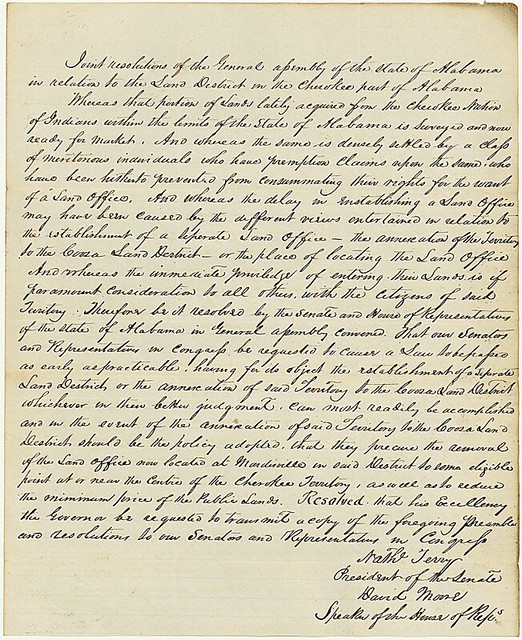 Joint resolutions of the General assembly of the State of Alabama
in relation to the Land District in the Cherokee part of Alabama
Whereas that portion of Lands lately acquired from the Cherokee Nation
of Indians within the limits of the State of Alabama is surveyed and now
ready for market. And whereas the same is densely settled by a class
of meritorious individuals who have premption claims upon the same, who
have been hitherto prevented from consummating their rights for the want
of a Land Office. And whereas the delay in establishing a Land Office
may have been caused by the different views entertained in relation to
the establishment of a seperate Land Office – the annexation of the Territory
to the Coosa Land District – or the place of locating the Land Office
And whereas the immediate priviledge of entering their Lands is of
paramount consideration to all others, with the citizens of said
Territory. Therefore be it resolved by the Senate and House of Representatives
of the State of Alabama in General assembly convened, That our Senators
and Representatives in congress be requested to cause a Law to be passed
as early as practicable, having for its object the establishment of a seperate
Land District, or the annexation of said Territory to the Coosa Land District
whichever in their better judgment, can most readily be accomplished
and in the event of the annexation of said Territory to the Coosa Land
District should be the policy adopted, that they procure the removal
of the Land Office now located at Mardisville in said District to some eligible
point at or near the Centre of the Cherokee Territory, as well as to reduce
the minimum price of the Public Lands. Resolved that his Excellency
the Governor be requested to transmit a copy of the foregoing Preamble
and resolutions to our Senators and Representatives in Congress
Nathl Terry
President of the Senate
David Moore
Speaker of the House of Reps